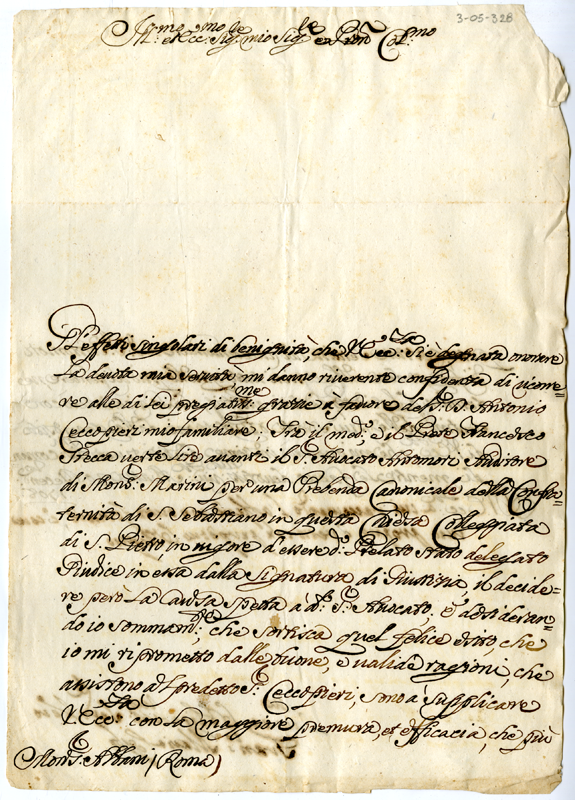 3-05-328
Ill:mo et Ecc:mo Sig:re mio Sig:re e Pron Col:mo
Gl'effetti singolari di benignità, che V. Ecc:za si è degnata onorare
la devota mia servitù mi danno riverente confidenza di ricorre=
re alle di lei pregiatis:me grazie à favore del S:r D. Antonio
Ceccopieri mio familiare; Trà il med:o e il Prete Francesco
Trecca verte lite avanti il S:r Avocato Antomori Auditore
di Mons:r Marini per una Prebenda Canonicale della Confra=
ternità di S. Sebastiano in questa Chiesa Colleggiata
di S. Pietro, in vigore d'essere d:o Prelato stato delegato
Giudice in essa dalla Signatura di Giustizia il decide=
re però la Causa spetta à d:o S:r Avocato, e desideran=
do io sommam:te che sortisca quel felice esito, che
io mi riprometto dalle buone, e valide ragioni, che
assistono al predetto S:r Ceccopieri, sono à supplicare
V. Ecc:za con la maggiore premura, et efficacia, che più
Mons:r Albani (Roma)